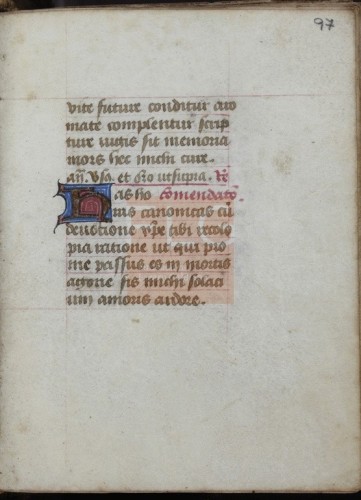 97
vite future conditur aro
mate complentur scrip
ture iugis sit memoria
mors hec michi cure.
añ. Vsq. et Oro ut supra. Re
Has ho comendato.
ras canonicas cũ
deuotione xp̃e tibi recolo
pia ratione ut qui pro
me passus es in mortis
agone sis michi solaci
um amoris ardore.